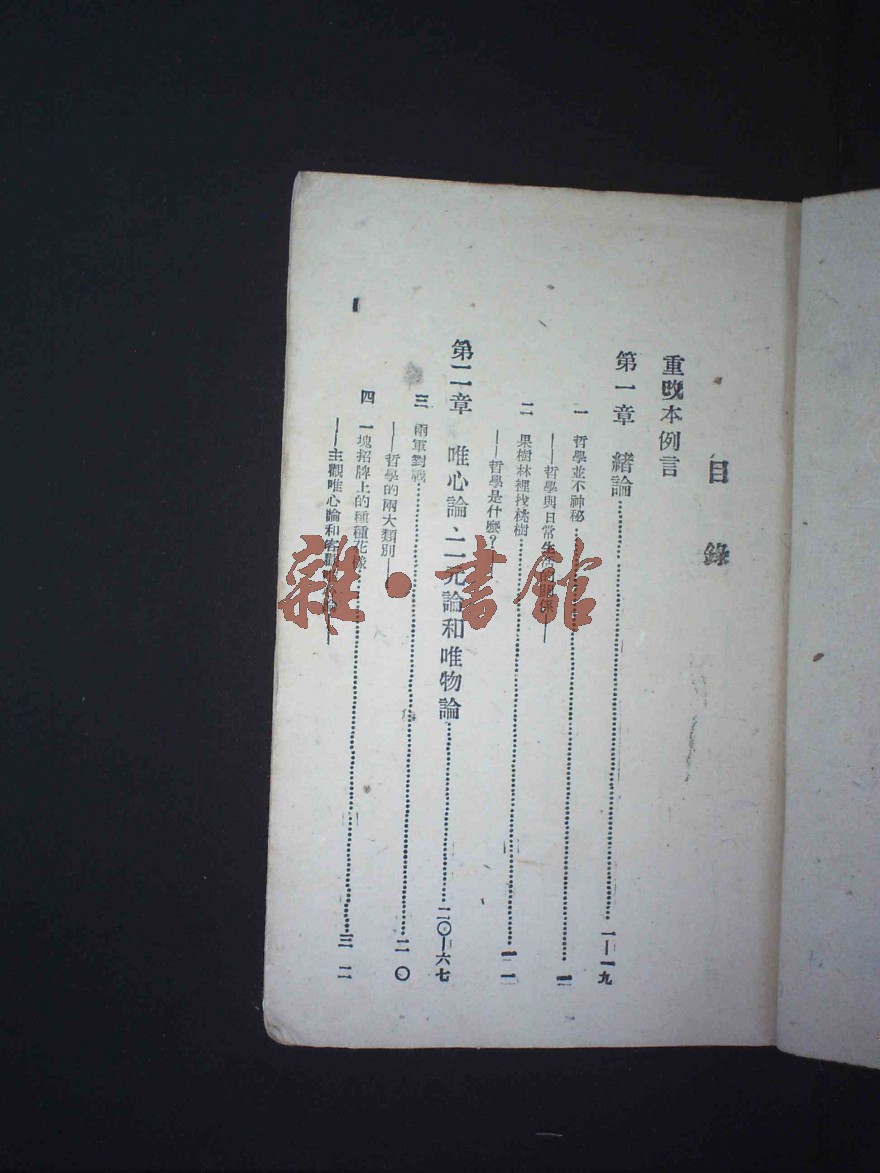 目錄
重改本例言
第一章 緒論……一—一九
一 哲學並不神秘……
——哲學與日常生活的關係——
二 果樹林裡找桃樹……一一
——哲學是什麼?——
第二章 唯心論、二元論和唯物論……二〇—六七
三 兩軍對戰……二〇
——哲學的兩大類別——
四 一塊招牌上的種種花樣……三二
——主觀唯心論和客觀唯心論——
雜·書館